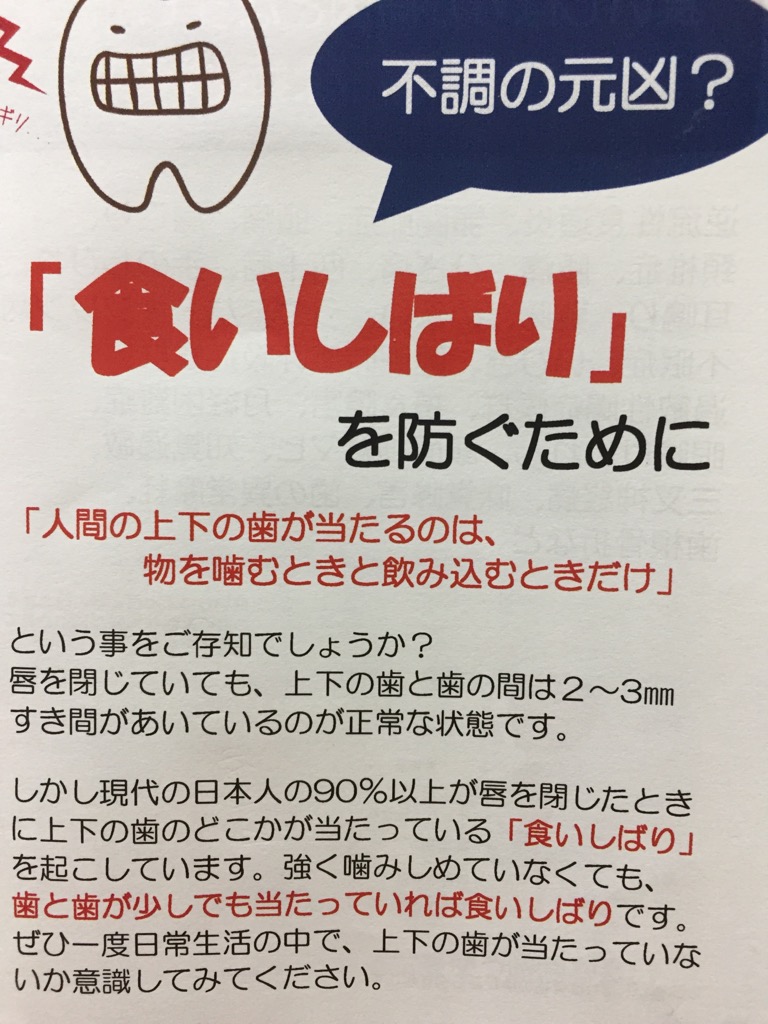 不調の元凶？
ギリ...
「食いしばり」
を防ぐために
「人間の上下の歯が当たるのは、
物を噛むときと飲み込むときだけ」
という事をご存知でしょうか？
唇を閉じていても、上下の歯と歯の間は２～3㎜
すき間があいているのが正常な状態です。
しかし現代の日本人の90%以上が唇を閉じたとき
に上下の歯のどこかが当たっている「食いしばり」
を起こしています。強く噛みしめていなくても、
歯と歯が少しでも当たっていれば食いしばりです。
ぜひ一度日常生活の中で、上下の歯が当たっていな
いか意識してみてください。